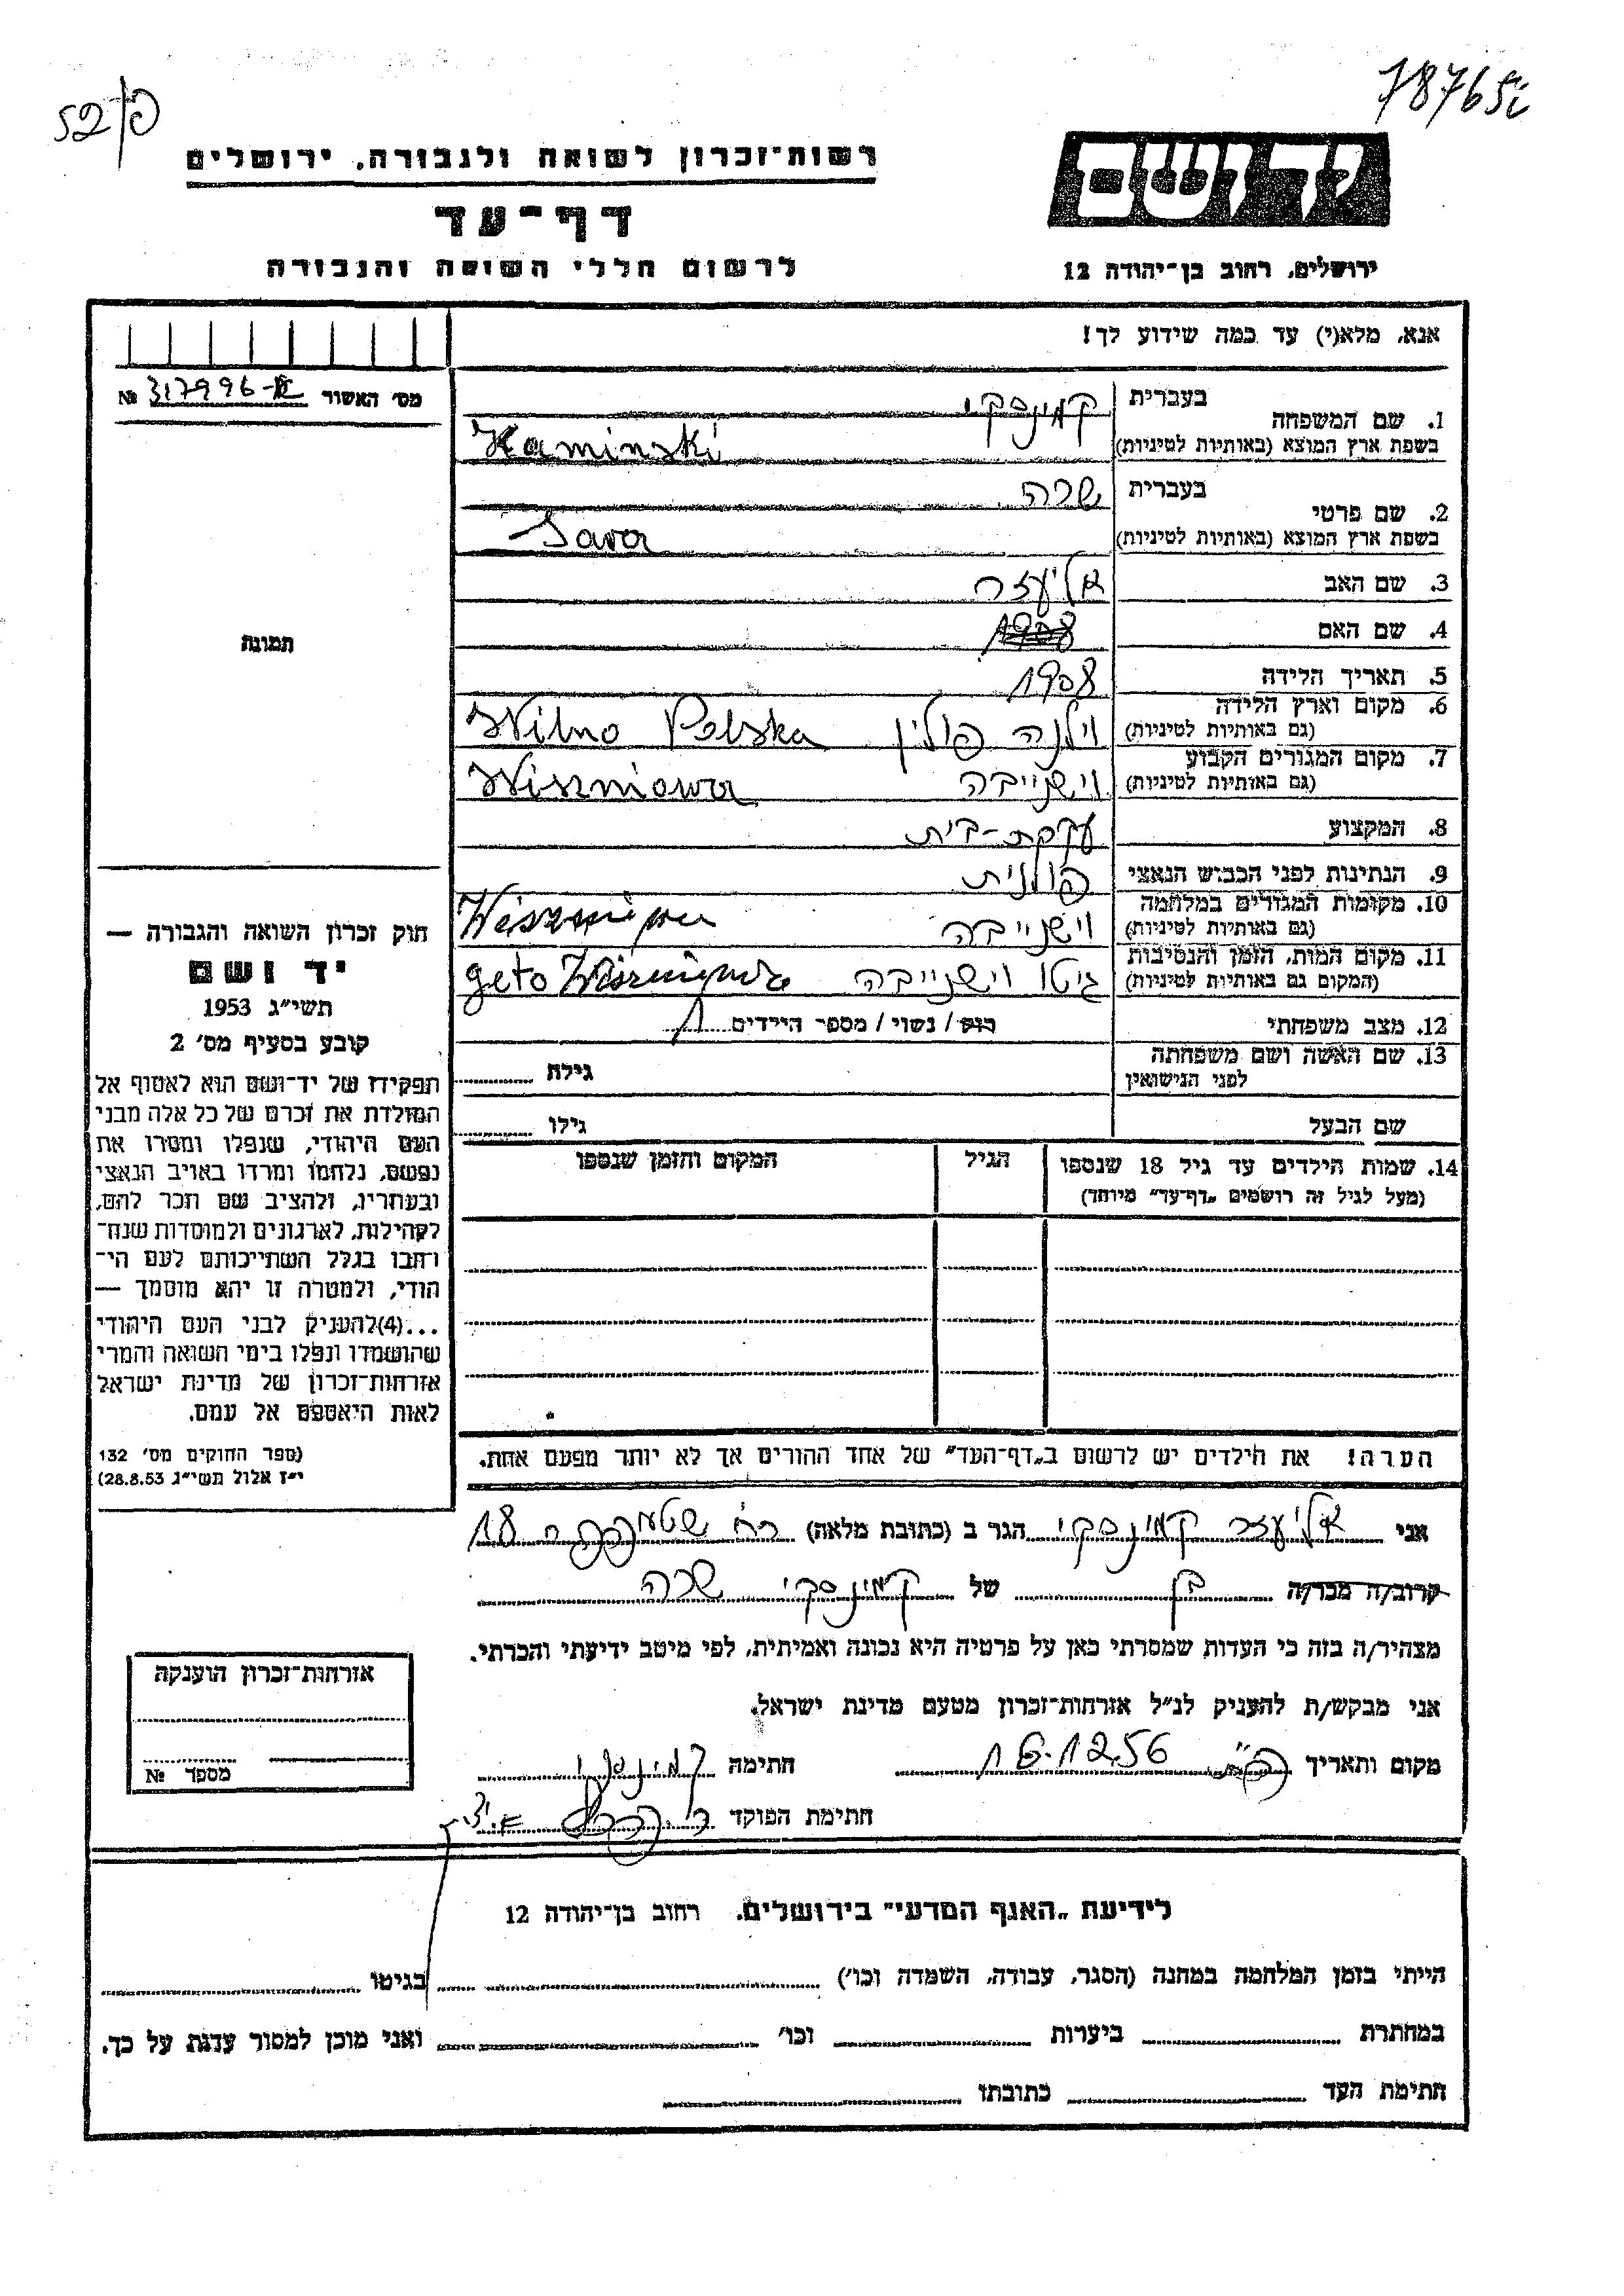 52/פ
78765
רשות־זכרון לשואה ולגבורה, ירושלים
יד ושם
דף־עד
לרשום חללי השואה והגבורה
ירושלים, רחוב בן־יהודה 12
אנא, מלא(י) עד כמה שידוע לך!
מס׳ האשור 317996-II №
1. שם המשפחה בעברית קמינסקי
בשפת ארץ המוצא (באותיות לטיניות) Kaminski
2. שם פרטי בעברית שרה
בשפת ארץ המוצא (באותיות לטיניות) Sara
3. שם האב אליעזר
4. שם האם 1908
5. תאריך הלידה 1908
6. מקום וארץ הלידה (גם באותיות לטיניות) וילנה פולין Wilno Polska
7. מקום המגורים הקבוע (גם באותיות לטיניות) וישנייבה Wiszniowa
8. המקצוע עקרת-בית
9. הנתינות לפני הכבוש הנאצי פולנית
10. מקומות המגורים במלחמה (גם באותיות לטיניות) וישנייבה
11. מקום המות, הזמן והנסיבות (המקום גם באותיות לטיניות) גיטו וישנייבה geto
12. מצב משפחתי רוק / נשוי / מספר הילדים 1
13. שם האשה ושם משפחתה לפני הנישואין גילה
שם הבעל גילו
14. שמות הילדים עד גיל 18 שנספו הגיל המקום והזמן שנספו
(מעל לגיל זה רושמים „דף־עד״ מיוחד)
תמונה
חוק זכרון השואה והגבורה —
יד ושם
תשי״ג 1953
קובע בסעיף מס׳ 2
תפקידו של יד־ושם הוא לאסוף אל
המולדת את זכרם של כל אלה מבני
העם היהודי, שנפלו ומסרו את
נפשם, נלחמו ומרדו באויב הנאצי
ובעוזריו, ולהציב שם וזכר להם,
לקהילות, לארגונים ולמוסדות שנח־
רבו בגלל השתייכותם לעם הי־
הודי, ולמטרה זו יהא מוסמך —
...(4)להעניק לבני העם היהודי
שהושמדו ונפלו בימי השואה והמרי
אזרחות־זכרון של מדינת ישראל
לאות היאספם אל עמם.
(ספר החוקים מס׳ 132
י״ז אלול תשי״ג 28.8.53)
הערה! את הילדים יש לרשום ב„דף־העד״ של אחד ההורים אך לא יותר מפעם אחת.
אני אליעזר קמינסקי הגר ב (כתובת מלאה) רח׳ 18
קרוב/ה מכר/ה בן של קמינסקי שרה
מצהיר/ה בזה כי העדות שמסרתי כאן על פרטיה היא נכונה ואמיתית, לפי מיטב ידיעתי והכרתי.
אני מבקש/ת להעניק לנ״ל אזרחות־זכרון מטעם מדינת ישראל.
מקום ותאריך 16.12.56 חתימה קמינסקי
חתימת הפוקד
אזרחות־זכרון הוענקה
מספר №
לידיעת „האגף המדעי״ בירושלים, רחוב בן־יהודה 12
הייתי בזמן המלחמה במחנה (הסגר, עבודה, השמדה וכו׳) בגיטו
במחתרת ביערות וכו׳ ואני מוכן למסור עדות על כך.
חתימת העד כתובתו